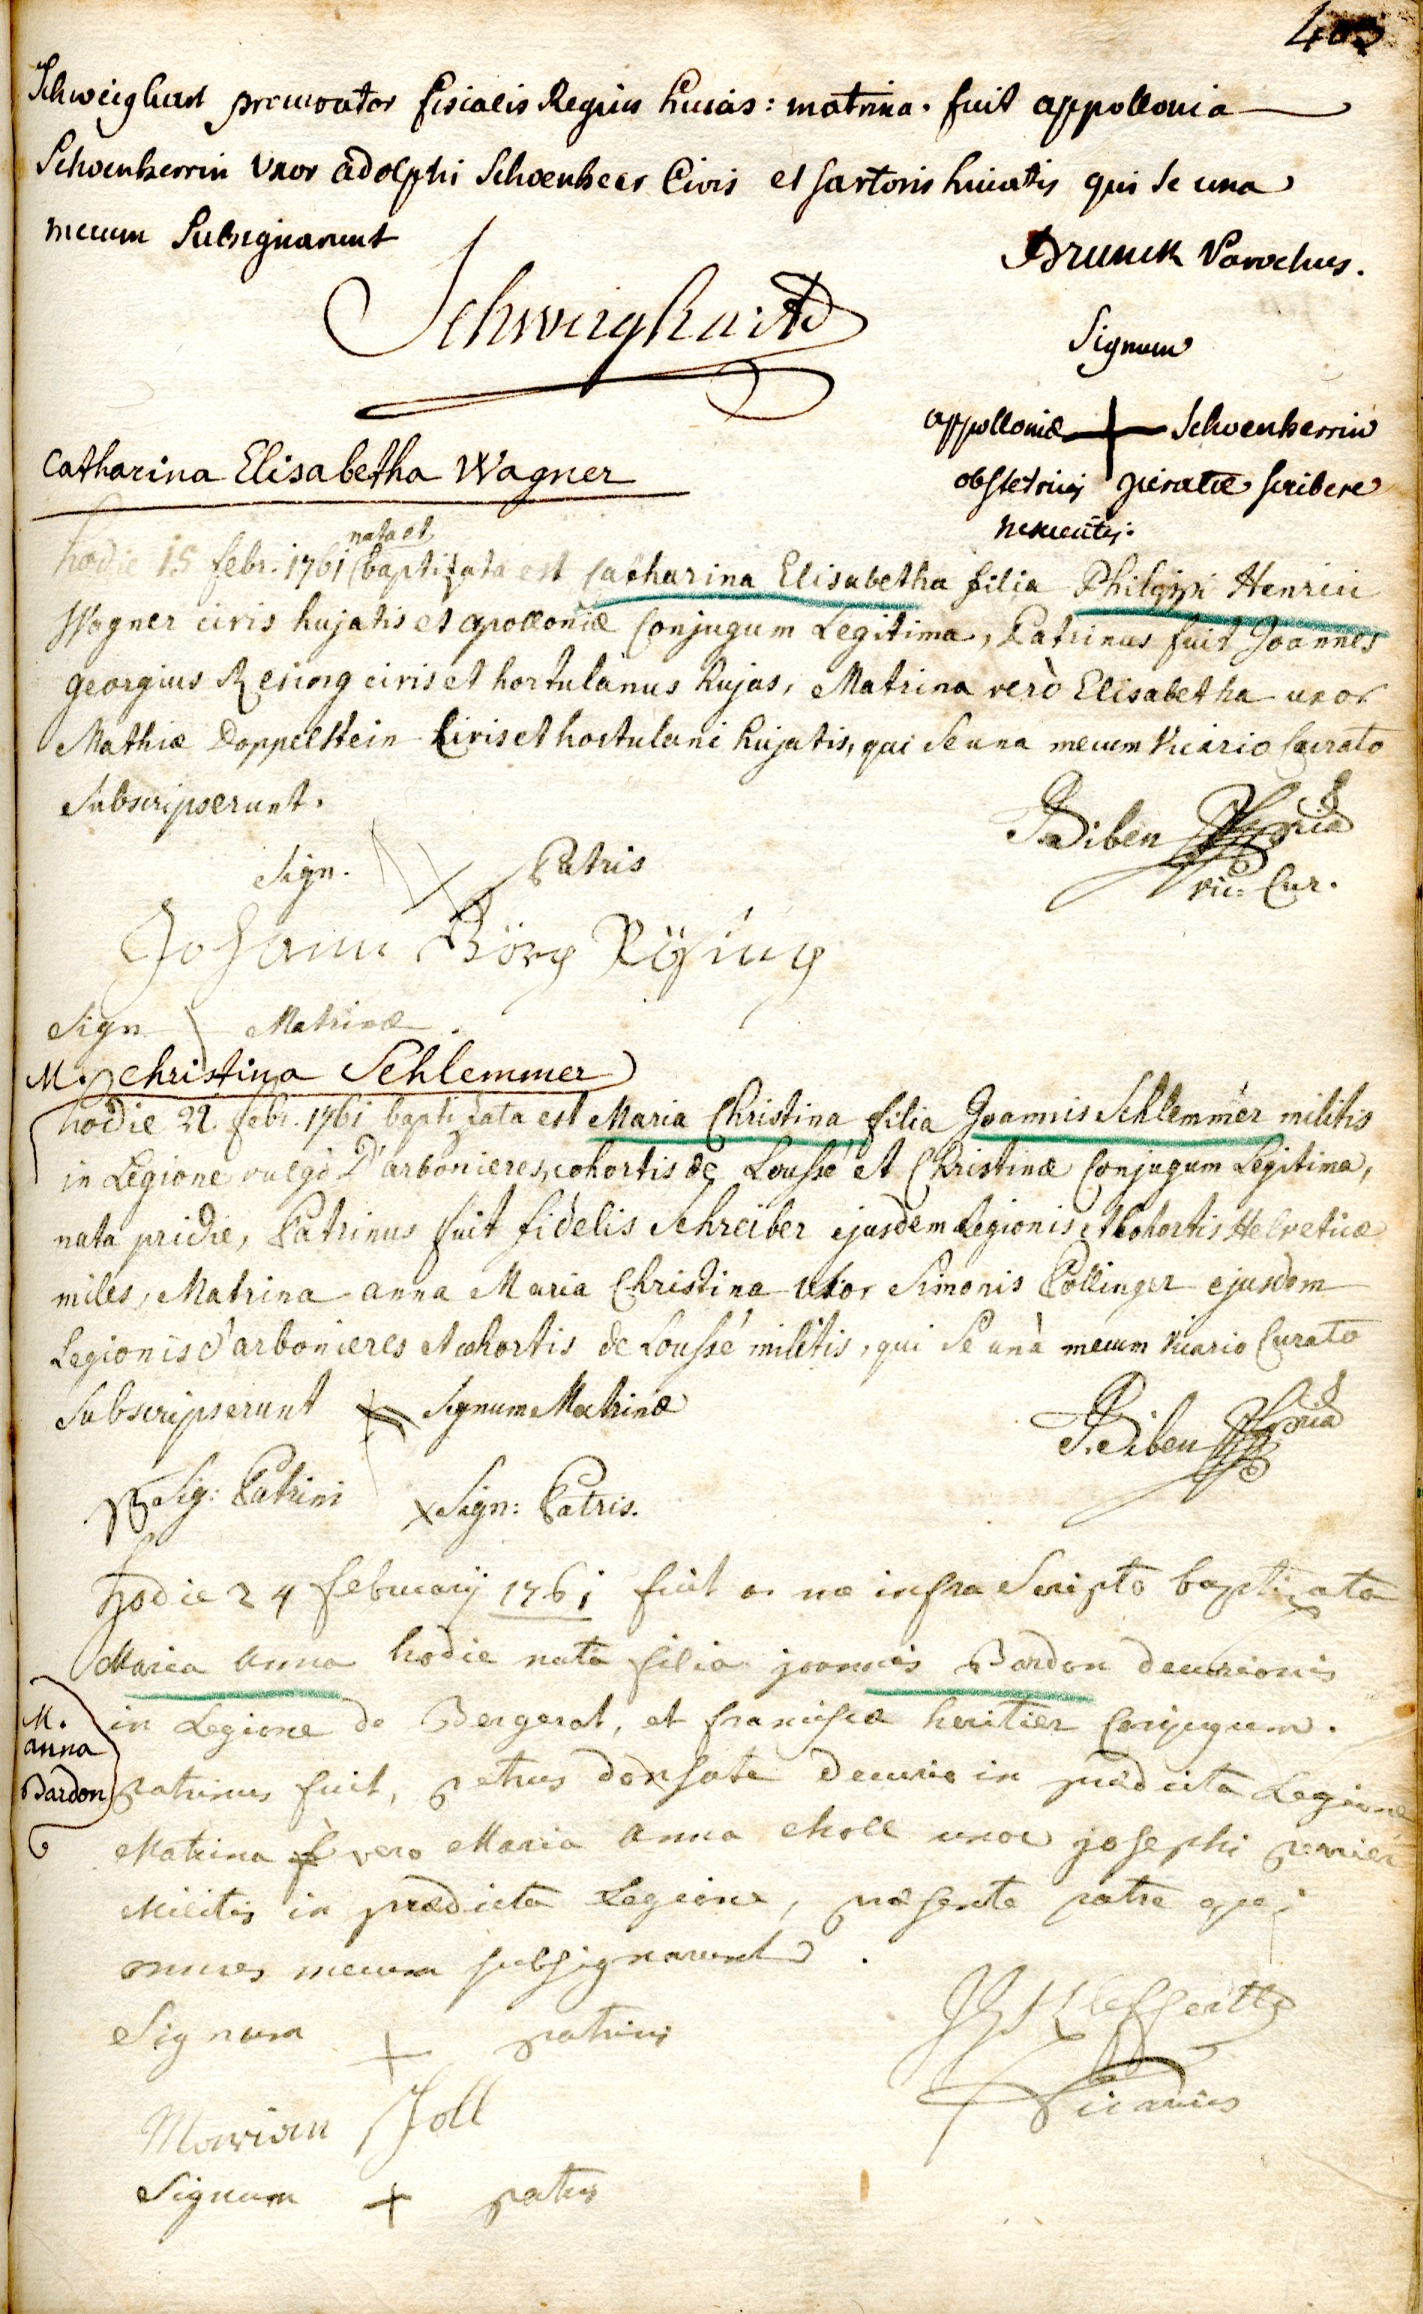 403
Schweighart procurator fiscalis Regius huias: matrina. fuit appollonia
Schoenherrin Uxor adolphi Schoenherr Civis et sartoris huiatis qui se una
mecum Subsignarunt
Brunck Parochus.
Schweighardt
Signum
appolloniæ + Schoenherrin
obstetricis juratæ scribere
nescientis.
Catharina Elisabetha Wagner
nata et
hodie 15 febr. 1761 baptizata est Catharina Elisabetha filia Philippi Henrici
Wagner civis hujatis et apolloniæ Conjugum Legitima, Patrinus fuit Joannes
georgius Resing civis et hortulanus hujas, Matrina verò Elisabetha uxor
Mathiæ Doppelstein Civis et hortulani hujatis, qui se una mecum Vicario Curato
Subscripserunt.
vic: Cur.
Sign. Patris
Johann Görg Rÿsing
Sign Matrinæ
M. Christina Schlemmer
hodie 22 febr. 1761 baptizata est Maria Christina filia Joannis Schlemmer militis
in Legione vulgò D'arbonieres, cohortis de Loussé et Christinæ Conjugum Legitima,
nata pridie, Patrinus fuit fidelis Schreiber ejusdem Legionis et Cohortis Helveticæ
miles, Matrina anna Maria Christina uxor Simonis Pollinger ejusdem
Legionis d'arbonieres et cohortis de Loussé militis, qui se unà mecum Vicario Curato
Subscripserunt Signum Matrinæ
Sig: Patrini Sign: Patris.
hodie 24 februarij 1761 fuit a me infra Scripto baptizata
Maria anna hodie nata filia joannis Bardon decurionis
in Legione de Bergerat, et franciscæ heritier Conjugum.
M.
anna
Bardon
patrinus fuit, petrus donsate decurio in prædicta Legione
Matrina vero Maria anna choll uxor josephi perrier
Militis in prædicta Legione, præsente patre qui
omnes mecum subsignarunt.
Signum + patrini
Vicarius
Marian Joll
Signum + patris